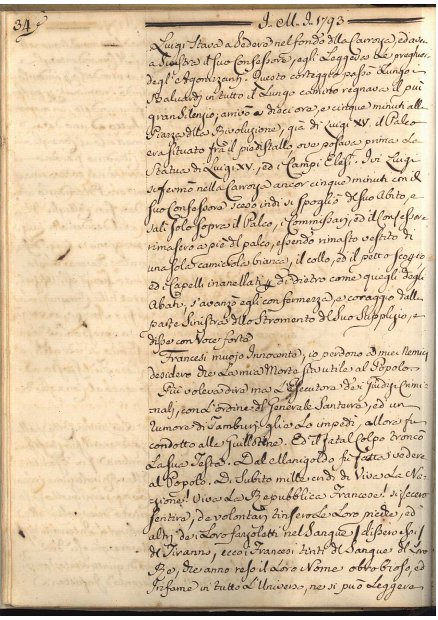 34
J. M. J. 1793
Luigi stava a sedere nel fondo della Carrozza, ed aveva
a Sinistra il suo Confessore, egli Leggeva le preghiere
degl'Agonizzanti. Questo corteggio passò Lungo i
Baluardi, in tutto il Lungo camino regnava il più
gran Silenzio; arrivò a dieci ore, e cinque minuti alla
Piazza della Rivoluzione, già di Luigi XV. Il Palco
era situato frà il piedistallo, ove posava prima la
Statua di Luigi XV, ed i Campi Elesi. Ivi Luigi
si fermò nella Carrozza ancor cinque minuti con il
suo Confessore scese indi si spogliò del suo Abito, e
salì solo sopra il Palco, i Commissarj, ed il Confessore
rimasero a piè di palco, essendo rimasto vestito di
una sola camiciola bianca, il collo, ed il petto scoperto
ed i Capelli inanellati di dietro come quegli degli
Abati, s'avanzò egli con fermezza, e coraggio dalla
parte Sinistra dello Stromento del suo Supplizio, e
disse con Voce forte
Francesi muojo Innocente, io perdono a' miei Nemici
desidero che La mia Morte sia utile al Popolo.
Più voleva dire ma L'Esecutore dei Giudizj Crimi-
nali, con L'ordine del Generale Santerra, ed un
rumore di Tamburi glie Lo impedì, allora fu
condotto alla Guillotine. Ed il fatal Colpo troncò
La sua Testa. Dal Manigoldo fu fatta vedere
al Popolo. Di subito mille gridi di Viva La Na-
zione! Viva La Repubblica Francese! si fecero
sentire, de volontarj tinsero Le Loro picche, ed
altri de i Loro fazzoletti nel Sangue
di Tiranno, ecco i Francesi tinti di Sangue di Loro
Rè, che anno reso il Loro Nome obbrobrioso, ed
Infame in tutto L'Universo, ne si può Leggere